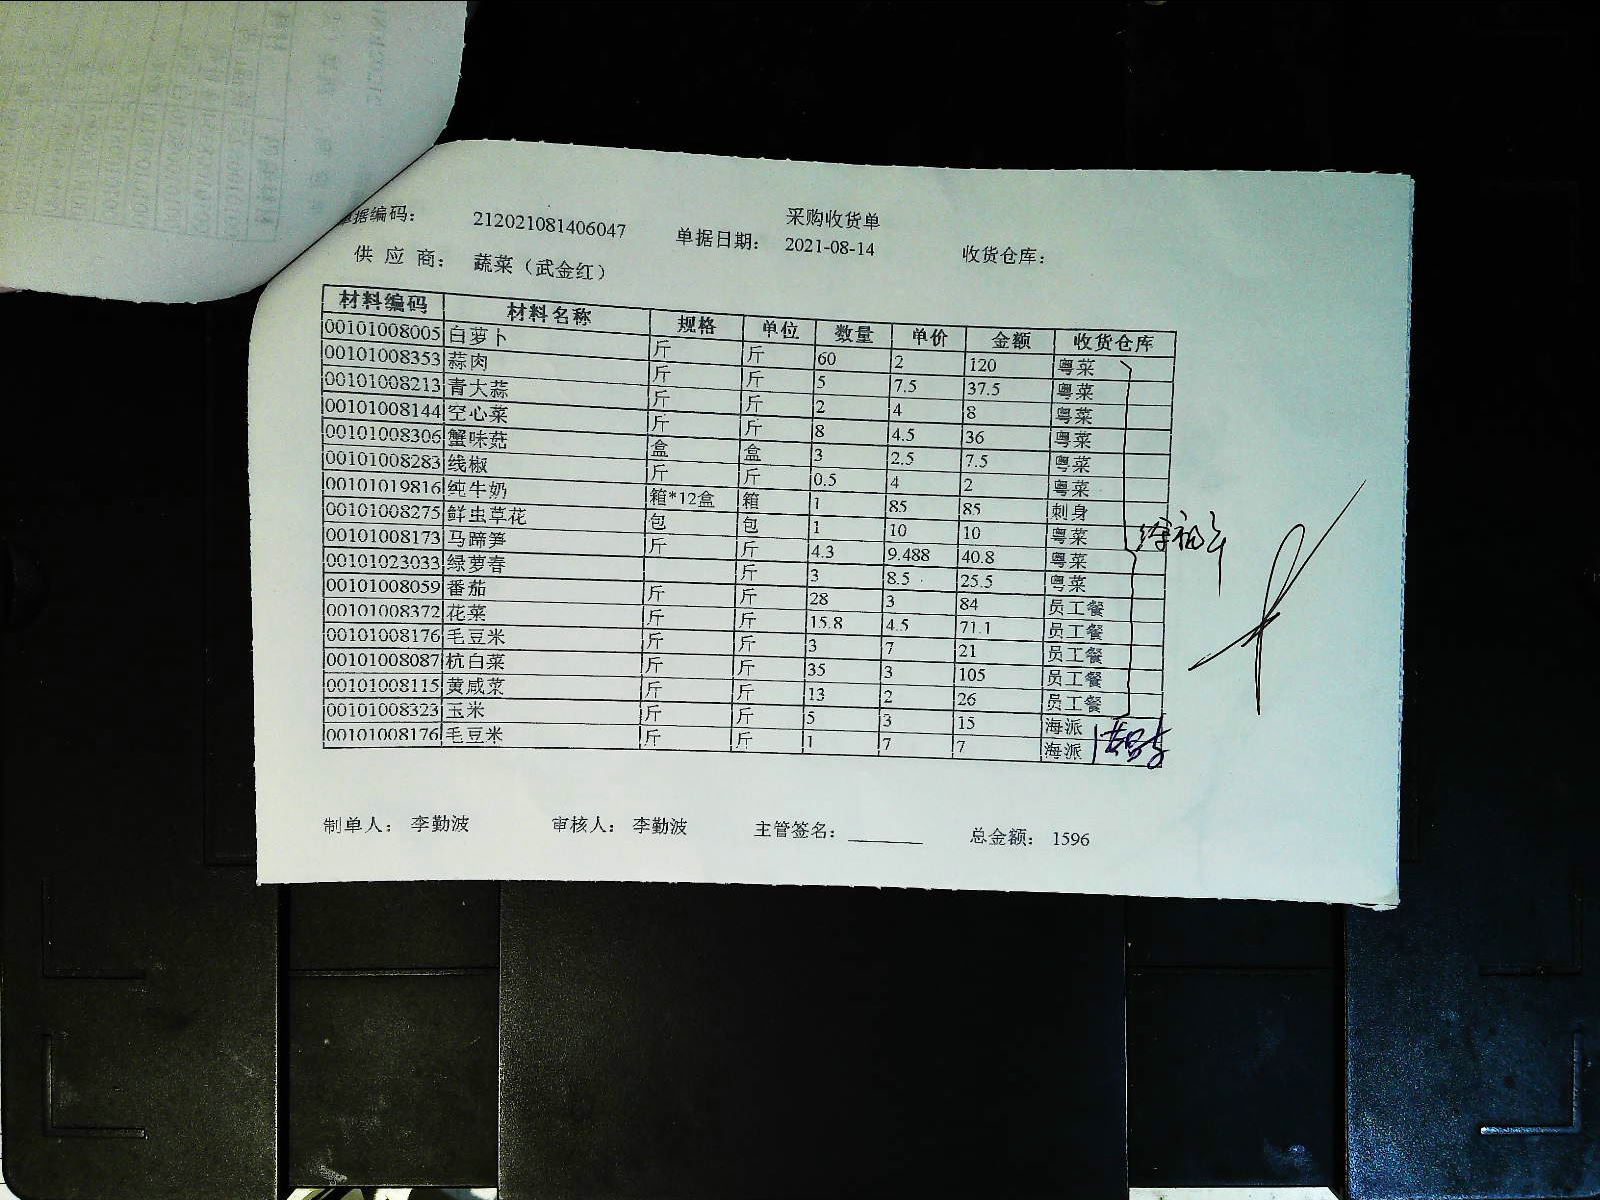 采购收货单
据编码： 212021081406047 单据日期： 2021-08-14 收货仓库：
供 应 商： 蔬菜（武金红）
材料编码 材料名称 规格 单位 数量 单价 金额 收货仓库
00101008005 白萝卜 斤 斤 60 2 120 粤菜
00101008353 蒜肉 斤 斤 5 7.5 37.5 粤菜
00101008213 青大蒜 斤 斤 2 4 8 粤菜
00101008144 空心菜 斤 斤 8 4.5 36 粤菜
00101008306 蟹味菇 盒 盒 3 2.5 7.5 粤菜
00101008283 线椒 斤 斤 0.5 4 2 粤菜
00101019816 纯牛奶 箱*12盒 箱 1 85 85 刺身
00101008275 鲜虫草花 包 包 1 10 10 粤菜
00101008173 马蹄笋 斤 斤 4.3 9.488 40.8 粤菜
00101023033 绿萝春 斤 3 8.5 25.5 粤菜
00101008059 番茄 斤 斤 28 3 84 员工餐
00101008372 花菜 斤 斤 15.8 4.5 71.1 员工餐
00101008176 毛豆米 斤 斤 3 7 21 员工餐
00101008087 杭白菜 斤 斤 35 3 105 员工餐
00101008115 黄咸菜 斤 斤 13 2 26 员工餐
00101008323 玉米 斤 斤 5 3 15 海派
00101008176 毛豆米 斤 斤 1 7 7 海派
制单人： 李勤波 审核人： 李勤波 主管签名： 总金额： 1596